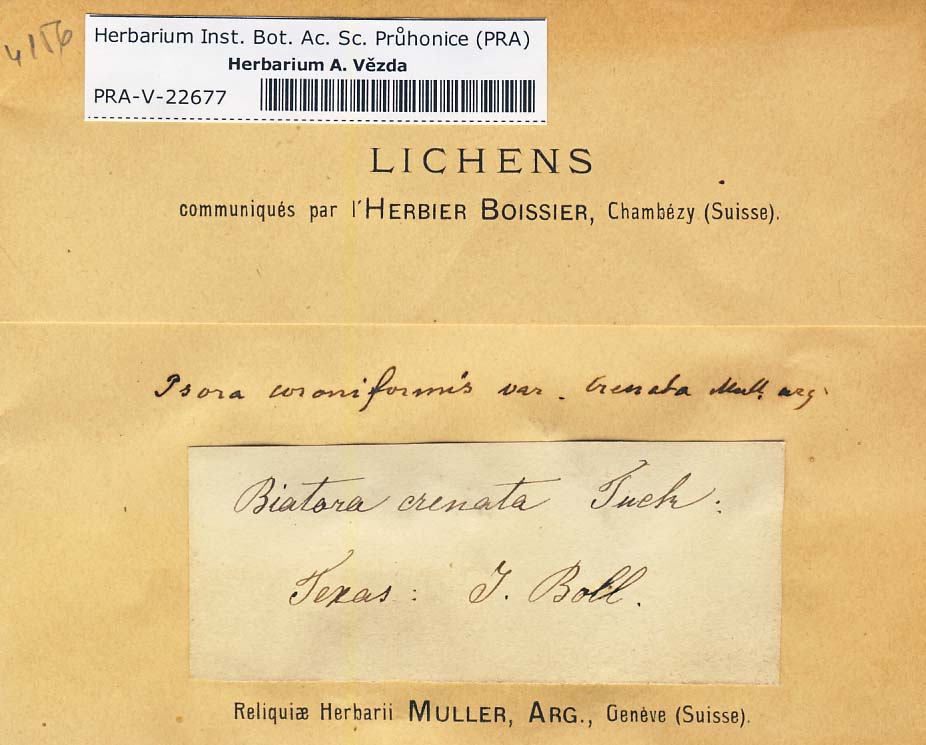 4156
Herbarium Inst. Bot. Ac. Sc. Průhonice (PRA)
Herbarium A. Vězda
PRA-V-22677
LICHENS
communiqués par l'HERBIER BOISSIER, Chambézy (Suisse).
Psora coroniformis var. Crenata Mull. arg.
Biatora crenata Tuck:
Texas: J. Boll.
Reliquiæ Herbarii MULLER, ARG., Genève (Suisse).